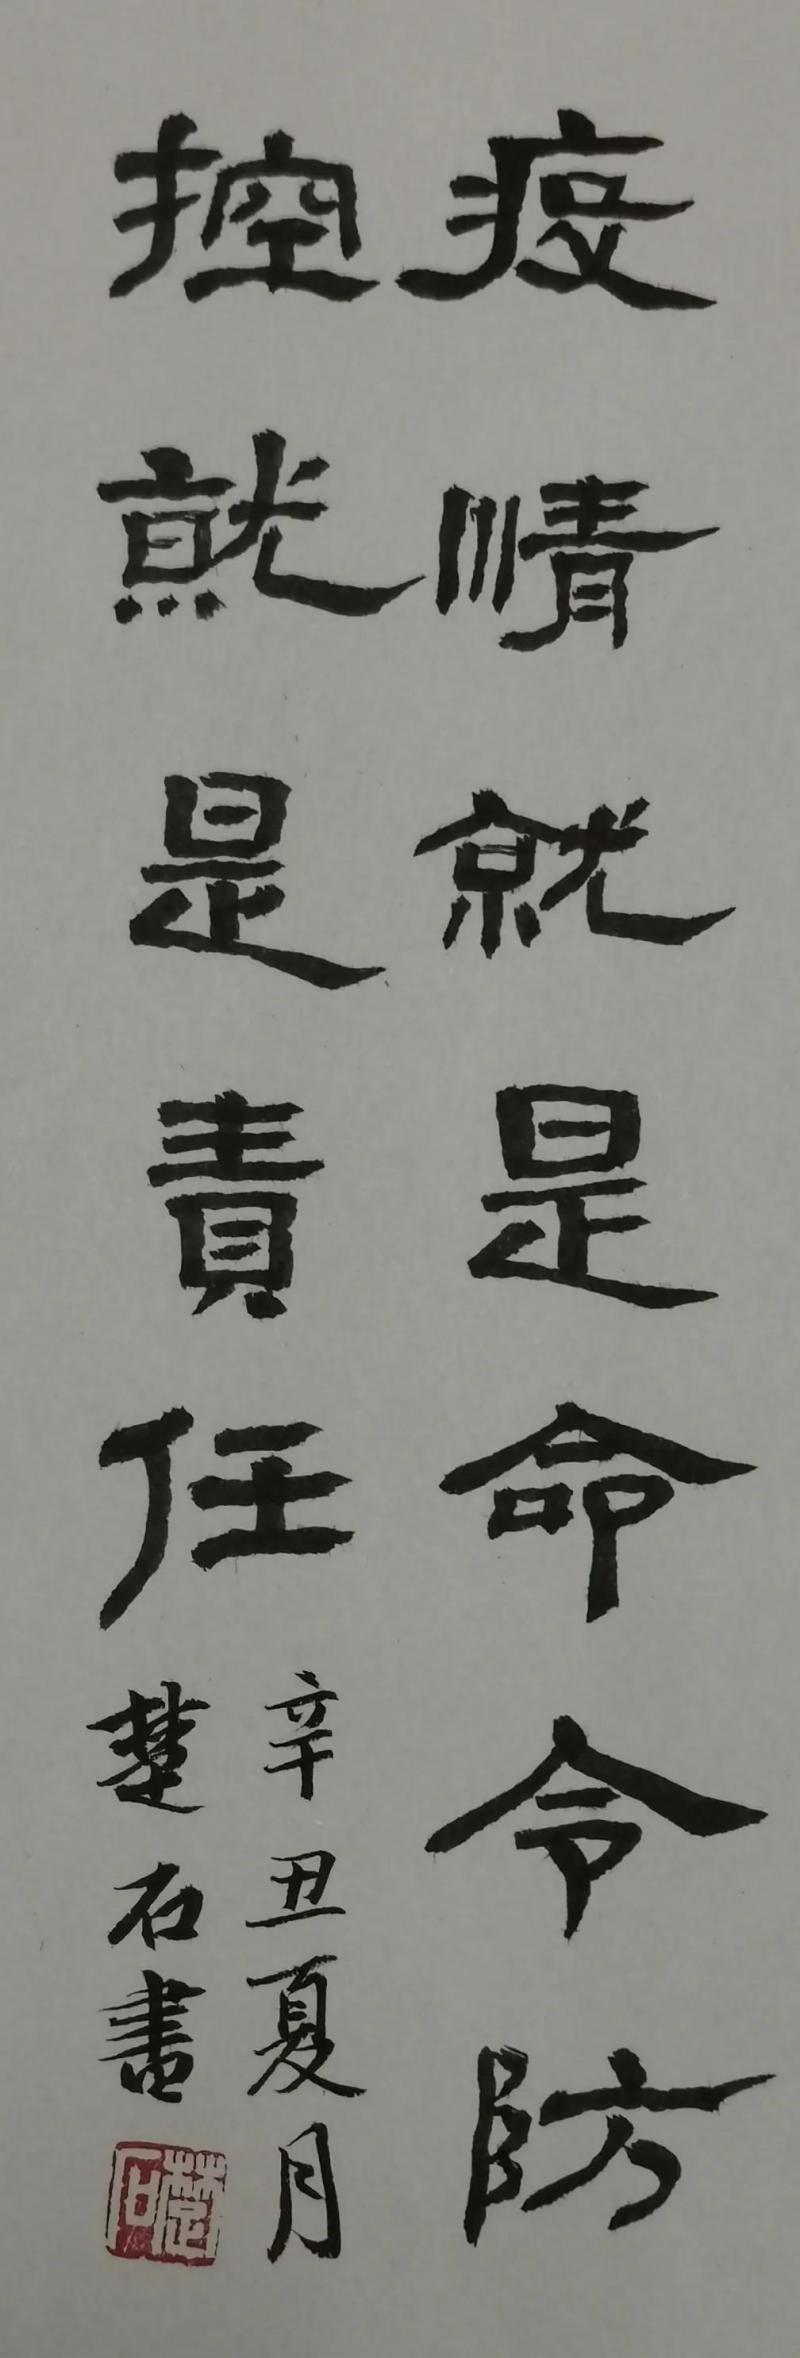 疫情就是命令防
控就是責任
辛丑夏月
楚石書
楚石